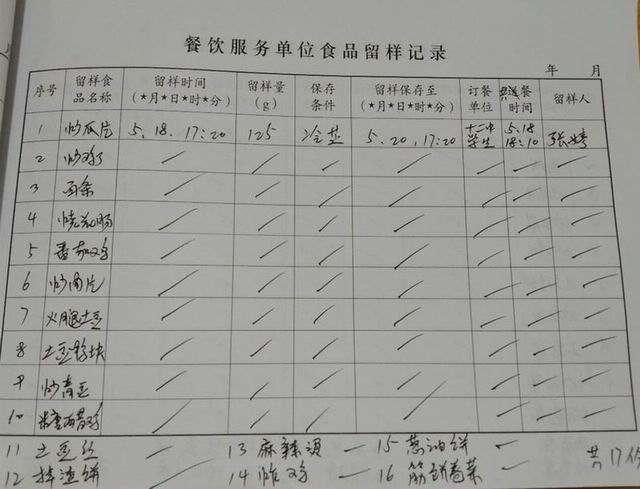 餐饮服务单位食品留样记录
年 月
序号 留样食品名称 留样时间(*月*日*时*分) 留样量(g) 保存条件 留样保存至(*月*日*时*分) 订餐单位 送餐时间 留样人
1 炒瓜片 5.18.17:20 125 冷垫 5.20.17:20 十二中学生 5.18 18:10 张婷
2 炒鸡丁
3 面条
4 烧茄肠
5 番茄鸡
6 炒肉片
7 火腿土豆
8 土豆鸡块
9 炒青豆
10
11 土豆丝 13 麻辣烫 15 葱油饼 共17份
12 拌渣饼 14 炸鸡 16 筋饼卷菜